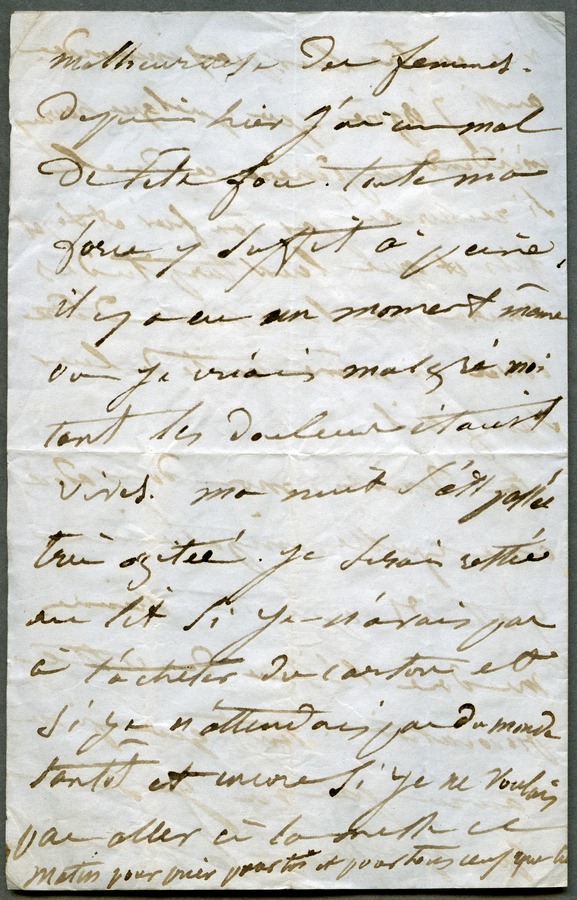 malheureuse des femmes.
Depuis hier j'ai un mal
de tête fou. toute ma
force y suffit à peine,
il y a eu un moment même
ou je criais malgré moi
tant les douleurs étaient
vives. ma nuit s'est passée
très agitée. je serais restée
au lit si je n'avais pas
à t'acheter du carton et
si je n'attendais pas du monde
tantôt et encore si je ne voulais
pas aller à la messe ce
matin pour prier pour toi et pour tous ceux que tu